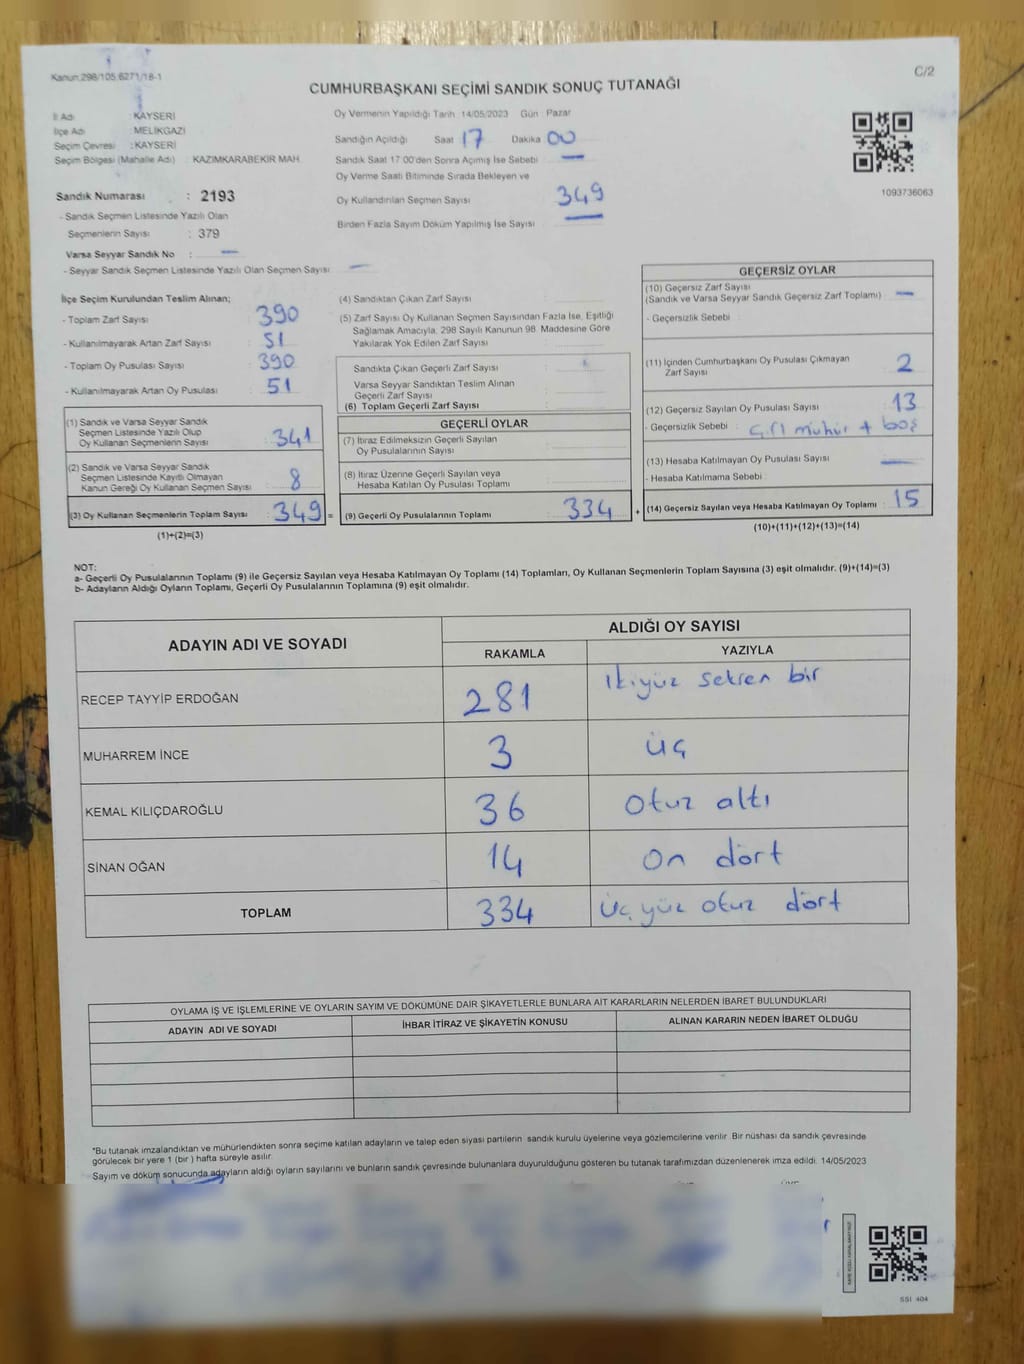 Kanun:298/105,6271/18-1
C/2
CUMHURBAŞKANI SEÇİMİ SANDIK SONUÇ TUTANAĞI
İl Adı : KAYSERİ
İlçe Adı : MELİKGAZİ
Seçim Çevresi : KAYSERİ
Seçim Bölgesi (Mahalle Adı) : KAZIMKARABEKIR MAH.
Sandık Numarası : 2193
- Sandık Seçmen Listesinde Yazılı Olan
Seçmenlerin Sayısı : 379
Varsa Seyyar Sandık No : —
- Seyyar Sandık Seçmen Listesinde Yazılı Olan Seçmen Sayısı : —
Oy Vermenin Yapıldığı Tarih 14/05/2023 Gün Pazar
Sandığın Açıldığı Saat 17 Dakika 00
Sandık Saat 17:00'den Sonra Açımış İse Sebebi —
Oy Verme Saati Bitiminde Sırada Bekleyen ve
Oy Kullandırılan Seçmen Sayısı 349
Birden Fazla Sayım Döküm Yapılmış İse Sayısı —
1093736063
İlçe Seçim Kurulundan Teslim Alınan;
- Toplam Zarf Sayısı : 390
- Kullanılmayarak Artan Zarf Sayısı : 51
- Toplam Oy Pusulası Sayısı : 390
- Kullanılmayarak Artan Oy Pusulası : 51
(1) Sandık ve Varsa Seyyar Sandık
Seçmen Listesinde Yazılı Olup
Oy Kullanan Seçmenlerin Sayısı : 341
(2) Sandık ve Varsa Seyyar Sandık
Seçmen Listesinde Kayıtlı Olmayan
Kanun Gereği Oy Kullanan Seçmen Sayısı 8
(3) Oy Kullanan Seçmenlerin Toplam Sayısı : 349 =
(1)+(2)=(3)
(4) Sandıktan Çıkan Zarf Sayısı :
(5) Zarf Sayısı Oy Kullanan Seçmen Sayısından Fazla İse, Eşitliği
Sağlamak Amacıyla, 298 Sayılı Kanunun 98. Maddesine Göre
Yakılarak Yok Edilen Zarf Sayısı :
Sandıkta Çıkan Geçerli Zarf Sayısı :
Varsa Seyyar Sandıktan Teslim Alınan
Geçerli Zarf Sayısı :
(6) Toplam Geçerli Zarf Sayısı :
GEÇERLİ OYLAR
(7) İtiraz Edilmeksizin Geçerli Sayılan
Oy Pusulalarının Sayısı :
(8) İtiraz Üzerine Geçerli Sayılan veya
Hesaba Katılan Oy Pusulası Toplamı :
(9) Geçerli Oy Pusulalarının Toplamı : 334 +
GEÇERSİZ OYLAR
(10) Geçersiz Zarf Sayısı
(Sandık ve Varsa Seyyar Sandık Geçersiz Zarf Toplamı) : —
- Geçersizlik Sebebi :
(11) İçinden Cumhurbaşkanı Oy Pusulası Çıkmayan
Zarf Sayısı : 2
(12) Geçersiz Sayılan Oy Pusulası Sayısı : 13
- Geçersizlik Sebebi : çift mühür + boş
(13) Hesaba Katılmayan Oy Pusulası Sayısı : —
- Hesaba Katılmama Sebebi :
(14) Geçersiz Sayılan veya Hesaba Katılmayan Oy Toplamı : 15
(10)+(11)+(12)+(13)=(14)
NOT:
a- Geçerli Oy Pusulalarının Toplamı (9) ile Geçersiz Sayılan veya Hesaba Katılmayan Oy Toplamı (14) Toplamları, Oy Kullanan Seçmenlerin Toplam Sayısına (3) eşit olmalıdır. (9)+(14)=(3)
b- Adayların Aldığı Oyların Toplamı, Geçerli Oy Pusulalarının Toplamına (9) eşit olmalıdır.
ADAYIN ADI VE SOYADI
ALDIĞI OY SAYISI
RAKAMLA YAZIYLA
RECEP TAYYİP ERDOĞAN 281 ikiyüz seksen bir
MUHARREM İNCE 3 üç
KEMAL KILIÇDAROĞLU 36 otuz altı
SİNAN OĞAN 14 on dört
TOPLAM 334 üç yüz otuz dört
OYLAMA İŞ VE İŞLEMLERİNE VE OYLARIN SAYIM VE DÖKÜMÜNE DAİR ŞİKAYETLERLE BUNLARA AİT KARARLARIN NELERDEN İBARET BULUNDUKLARI
ADAYIN ADI VE SOYADI İHBAR İTİRAZ VE ŞİKAYETİN KONUSU ALINAN KARARIN NEDEN İBARET OLDUĞU
*Bu tutanak imzalandıktan ve mühürlendikten sonra seçime katılan adayların ve talep eden siyasi partilerin sandık kurulu üyelerine veya gözlemcilerine verilir. Bir nüshası da sandık çevresinde
görülecek bir yere 1 (bir ) hafta süreyle asılır.
Sayım ve döküm sonucunda adayların aldığı oyların sayılarını ve bunların sandık çevresinde bulunanlara duyurulduğunu gösteren bu tutanak tarafımızdan düzenlenerek imza edildi. 14/05/2023
SSI 404